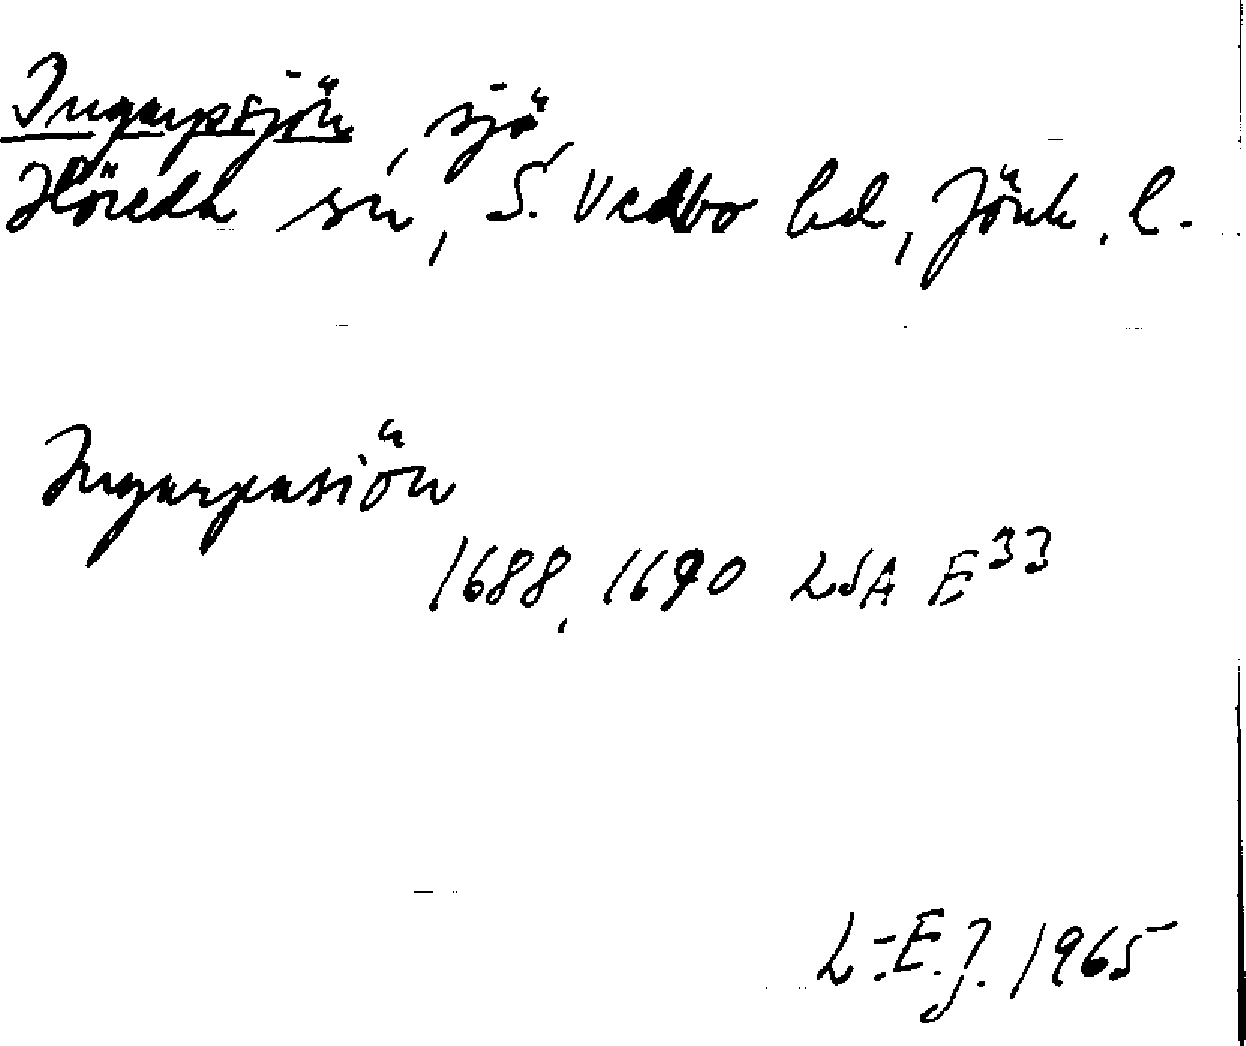 Ingarpsjön, sjö,
Höreda sn, S. Vedbo hd, Jönk. l.
Ingarpasiön
1688, 1690 LSA E33
L-E.J. 1965